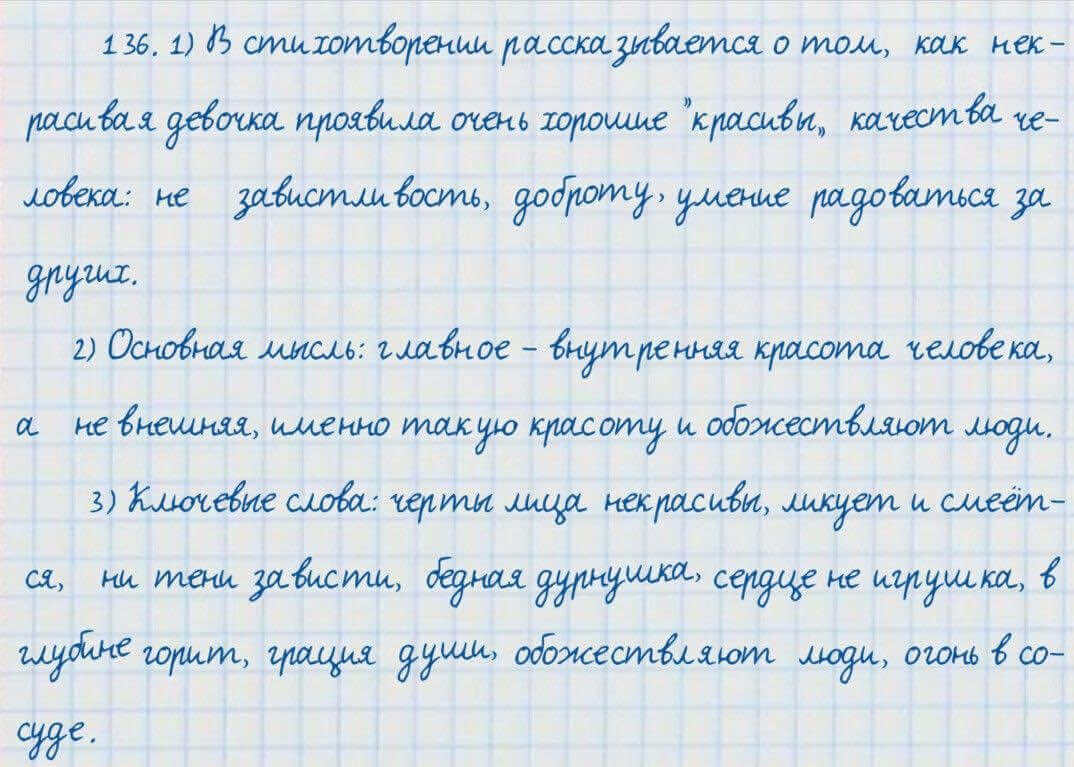 136. 1) В стихотворении рассказывается о том, как нек-
расивая девочка проявила очень хорошие "красивы„ качества че-
ловека: не завистливость, доброту, умение радоваться за
других.
2) Основная мысль: главное – внутренняя красота человека,
а не внешняя, именно такую красоту и обожествляют люди.
3) Ключевые слова: черты лица некрасивы, ликует и смеёт-
ся, ни тени зависти, бедная дурнушка, сердце не игрушка, в
глубине горит, грация души, обожествляют люди, огонь в со-
суде.